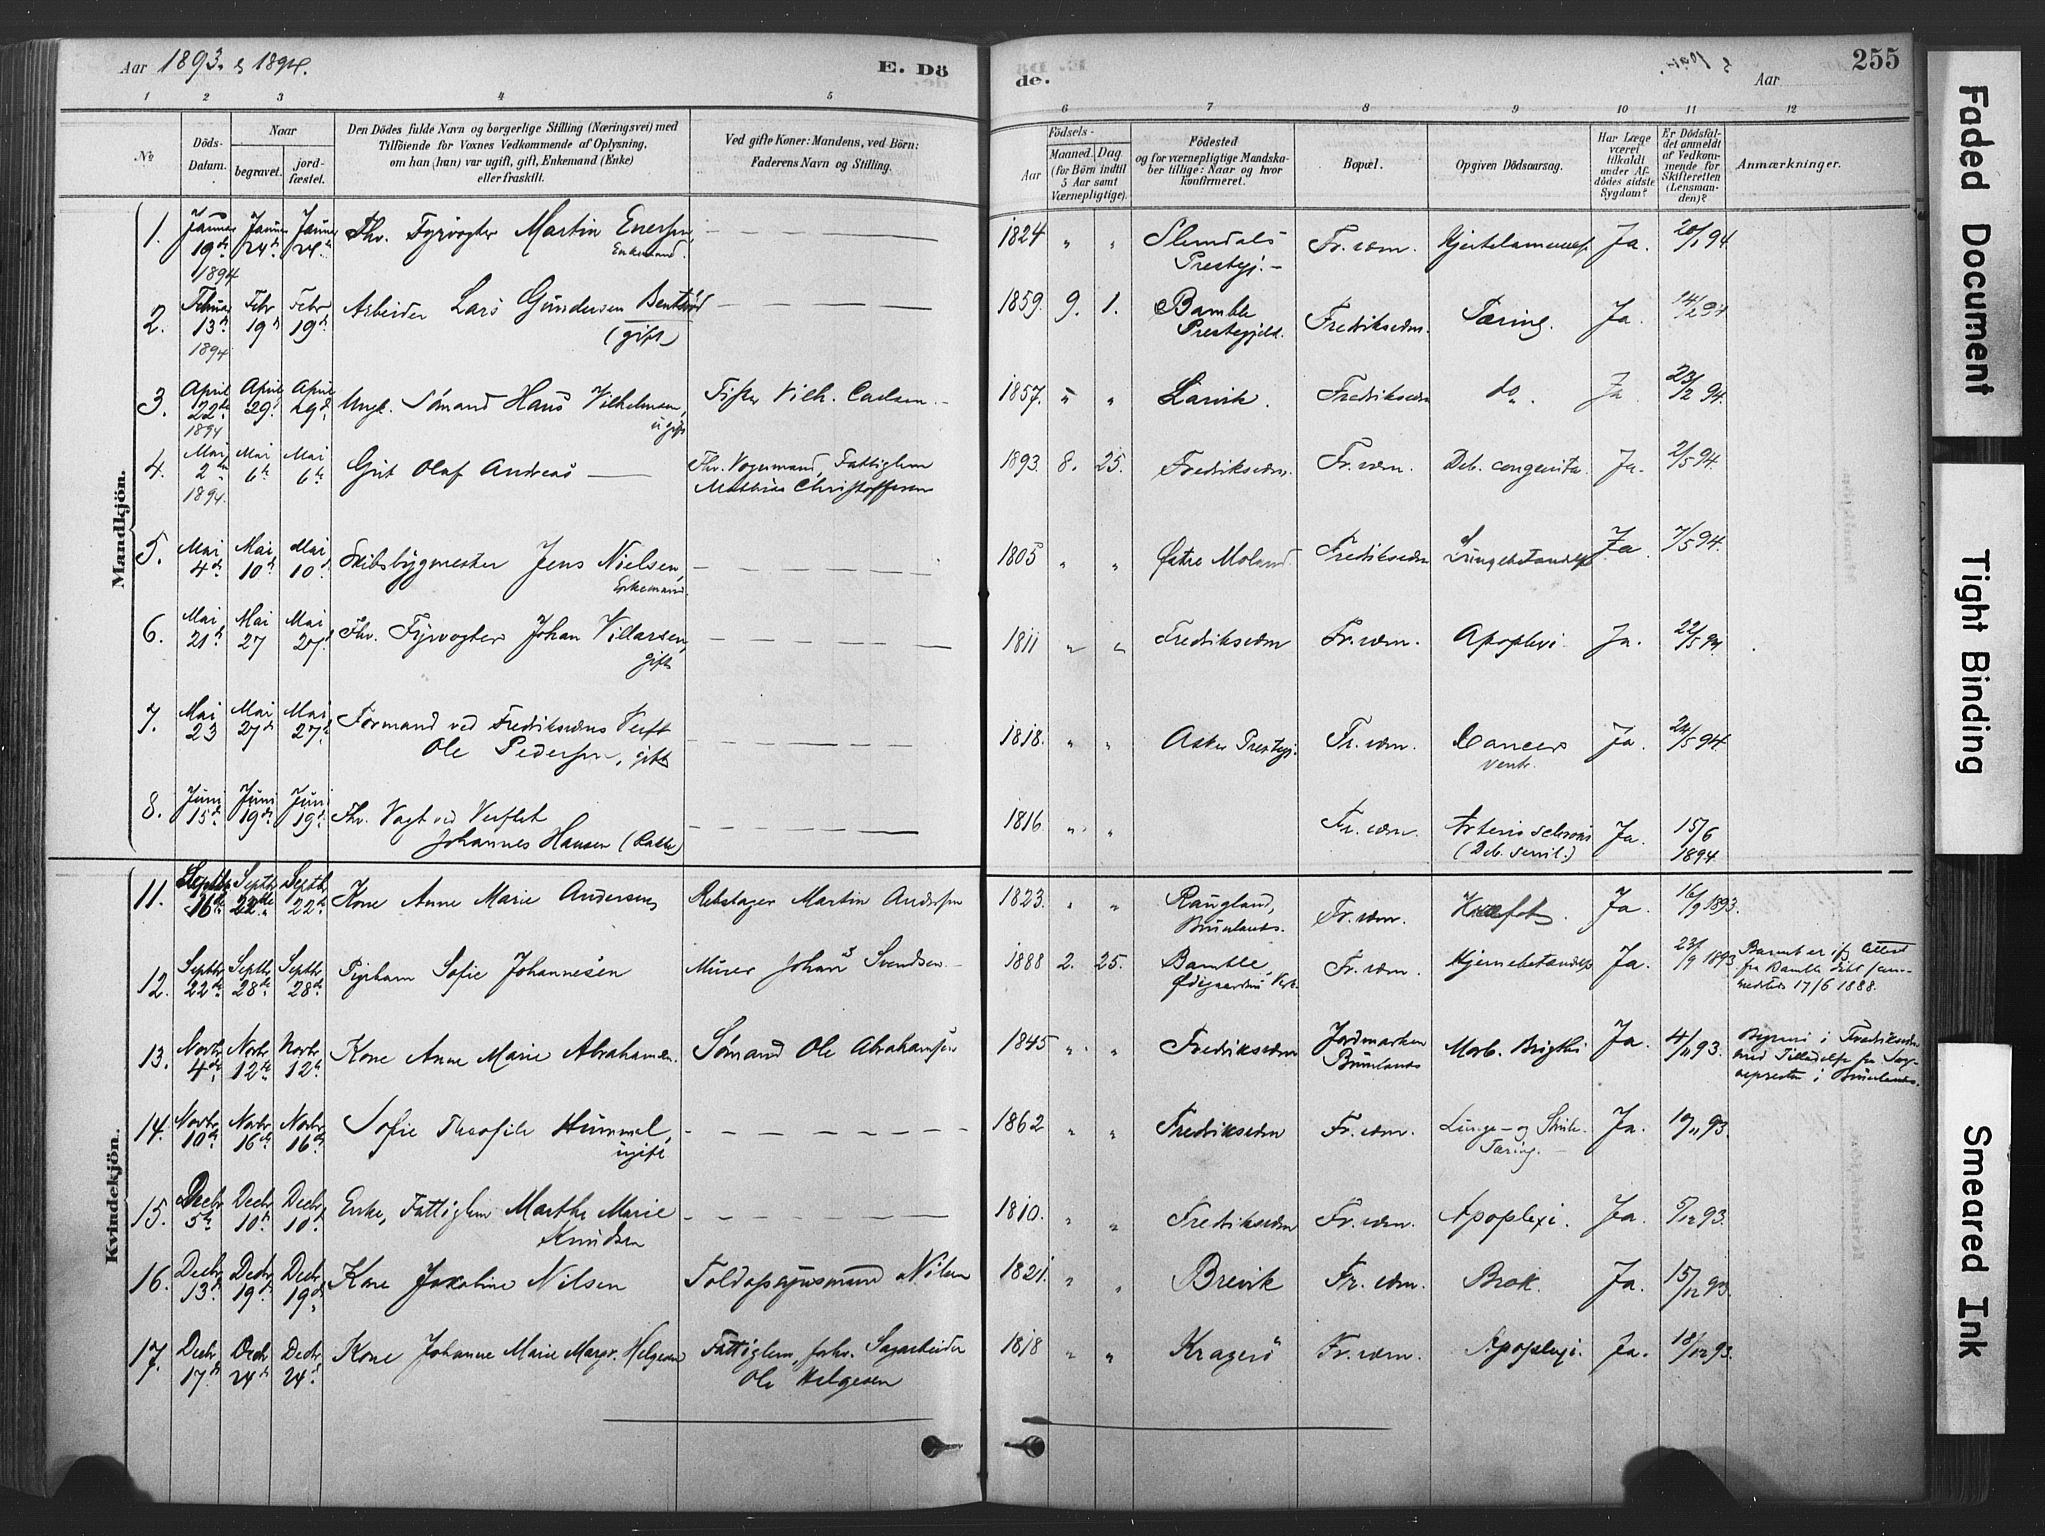 Aar 1893 & 1894.
E. Dö
de.
Aar
255
1 2 3 4 5 6 7 8 9 10 11 12
No
Döds-Datum.
Naar
begravet.
jord-fæstet.
Den Dödes fulde Navn og borgerlige Stilling (Næringsvei) med
Tilföiende for Voxnes Vedkommende af Oplysning,
om han (hun) var ugift, gift, Enkemand (Enke)
eller fraskilt.
Ved gifte Koner: Mandens, ved Börn:
Faderens Navn og Stilling.
Födsels-
Aar
Maaned.
Dag
(for Börn indtil
5 Aar samt
Værnepligtige).
Födested
og for værnepligtige Mandska-
ber tillige: Naar og hvor
konfirmeret.
Bopæl.
Opgiven Dödsaarsag.
Har Læge
været
tilkaldt
under Af-
dödes sidste
Sygdom?
Er Dödsfal-
det anmeldt
af Vedkom-
mende for
Skifteretten
(Lensman-
den)?
Anmærkninger.
Mandkjön.
1. Januar 19de 1894 Januar 24de Januar 24de Fhv. Fyrvogter Martin Enersen, Enkemand 1824 " " Slemdals Prestegj. Fr.værn. Ja. 20/1 94
2. Februar 13de 1894 Febr 19de Febr 19de Arbeider Lars Gundersen (gift) 1859. 9. 1. Bamble Prestegjeld. Fredriksværn. Tæring. Ja. 14/2 94
3. April 22de 1894 April 29de April 29de Ungk. Sømand Hans Vilhelmsen, ugift Vilh. Carlsen 1857. " " Larvik. Fredriksværn do. Ja 23/2 94.
4. Mai 2den 1894. Mai 6te Mai 6te Gut Olaf Andreas Fhv. Vognmand, Fattiglem Mathias Christoffersen 1893. 8. 25. Fredriksværn. Fr.værn. Deb. congenita. Ja. 2/5 94.
5. Mai 4de Mai 10de Mai 10de Skibsbygmester Jens Nielsen, Enkemand 1805 " " Østre Moland Fredriksværn Lungebetændelse Ja. 7/5 94.
6. Mai 21de Mai 27 Mai 27de Fhv. Fyrvogter Johan Villarsen, gift 1811 " " Fredriksværn Fr.værn. Apoplexi. Ja. 22/5 94.
7. Mai 23 Mai 27de Mai 27de Formand ved Fredriksværns Verft Ole Pedersen, gift 1818. " " Asker Prestegj. Fr.værn. Cancer ventr. Ja. 24/5 94.
8. Juni 15de Juni 19de Juni 19de Fhv. Vagt ved Verftet Johannes Hansen 1816 " " Fr.værn. Arterio sclerosis (Deb. senil.) Ja. 15/6 1894
Kvindekjön.
11. Septbr 16de Septbr 22de Septbr 22de Kone Anne Marie Andersen Rebslager Martin Andersen 1823. " " Brunlands. Fr.værn. Ja. 16/9 1893.
12. Septbr 22de Septbr 28de Septbr 28de Pigebarn Sofie Johannesen Murer Johans Svendsen 1888 2. 25. Bamble, Ødegaardens Verk. Fr.værn. Hjernebetændelse Ja. 23/9 1893 Barnet er if. Attest fra Bamble døbt sam- mesteds 17/6 1888.
13. Novbr 4de Novbr 12te Novbr 12te Kone Anne Marie Abrahamsen. Sømand Ole Abrahamsen 1845 " " Fredriksværn Brunlands Morb. Brigthi Ja. 4/11 93. i Fredriksværn med Tilladelse fra Sog- nepresten i Brunlands.
14. Novbr 10de Novbr 16de Novbr 16de Sofie Theofile Hummel, ugift 1862 " " Fredriksværn Fr.værn. Lunge- og Strube- Tæring. Ja. 10/11 93.
15. Decbr 5te Decbr 10de Decbr 10de Enke, Fattiglem Marthe Marie Knudsen 1810. " " Fredriksværn Fr.værn. Apoplexi. Ja. 5/12 93.
16. Decbr 13de Decbr 19de Decbr 19de Kone Jakobine Nilsen Toldopsynsmand Nilsen 1821. " " Brevik Fr.værn. Brok. Ja. 15/12 93.
17. Decbr 17de Decbr 24de Decbr 24de Kone Johanne Marie Margr. Helgesen Fattiglem, forhv. Sagarbeider Ole Helgesen 1818 " " Kragerö Fr.værn. Apoplexi. Ja. 18/12 93.
Faded Document
Tight Binding
Smeared Ink